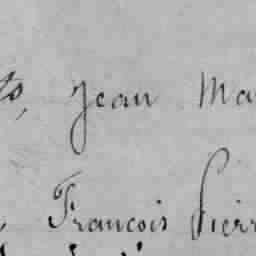 Jean Ma
François Pierr